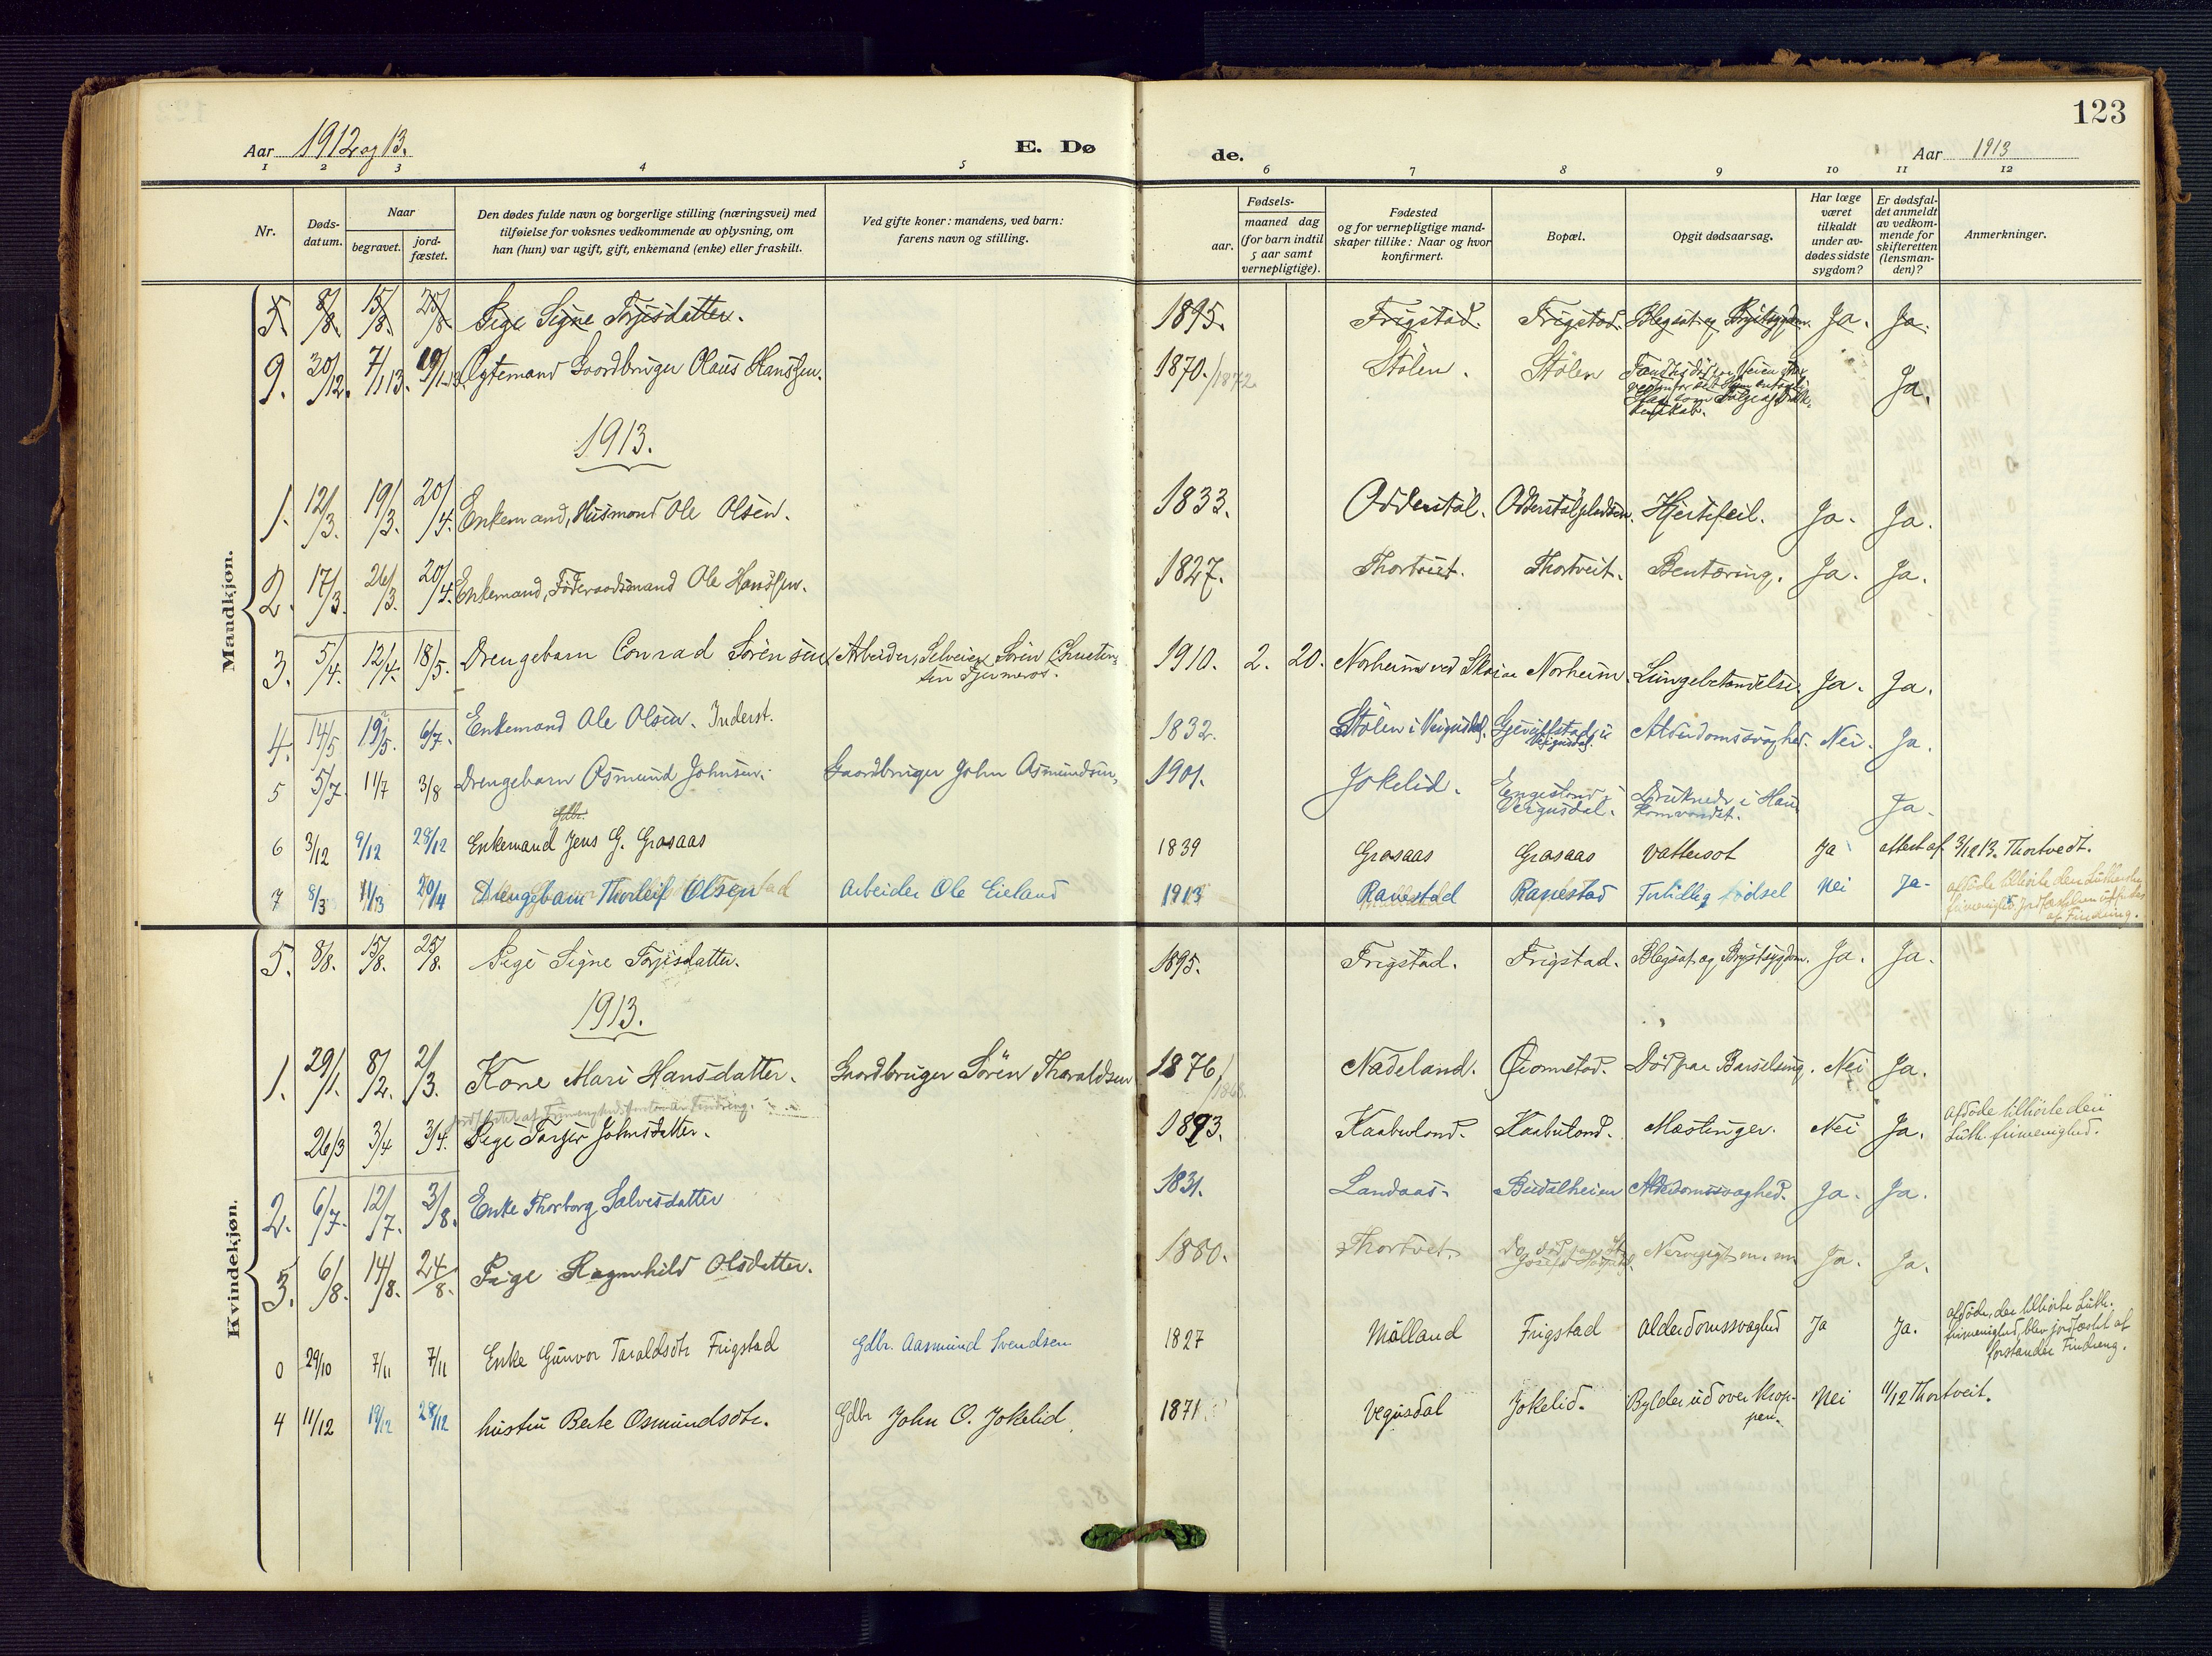 123
Aar 1912 og 13.
E. Dø
de.
Aar 1913
1 2 3 4 5 6 7 8 9 10 11 12
Nr.
Døds-
datum.
Naar
begravet.
jord-
fæstet.
Den dødes fulde navn og borgerlige stilling (næringsvei) med
tilføielse for voksnes vedkommende av oplysning, om
han (hun) var ugift, gift, enkemand (enke) eller fraskilt.
Ved gifte koner: mandens, ved barn:
farens navn og stilling.
Fødsels-
aar.
maaned dag
(for barn indtil
5 aar samt
vernepligtige).
Fødested
og for vernepligtige mand-
skaper tillike: Naar og hvor
konfirmert.
Bopæl.
Opgit dødsaarsag.
Har læge
været
tilkaldt
under av-
dødes sidste
sygdom?
Er dødsfal-
det anmeldt
av vedkom-
mende for
skifteretten
(lensman-
den)?
Anmerkninger.
Mandkjøn.
5. 8/8. 15/8. 25/8. Pige Signe Torjisdatter. 1895. Frigstad. Frigstad. Blegsot og Brystsygdom. Ja. Ja.
9. 30/12. 7/1 13. 19/1 13. Ægtemand Gaardbruger Olaus Hanssen. 1870./1872 Stölen. Stölen Ja.
1913.
1. 12/3. 19/3. 20/4. Enkemand, Husmand Ole Olsen. 1833. Odderstöl. Odderstölpladsen. Hjertefeil. Ja. Ja.
2. 17/3. 26/3. 20/4. Enkemand, Föderaadsmand Ole Hanssen. 1827. Thortveit. Thortveit. Bentæring. Ja. Ja.
3. 5/4. 12/4. 18/5. Drengebarn Conrad Sörensen Arbeider, Selveier Sören Christen-
sen 1910. 2. 20. Norheim ved Norheim. Lungebetændelse. Ja. Ja.
4. 14/5 19/5. 6/7. Enkemand Ole Olsen. Inderst. 1832. Stölen i Veigusdal. i
Veigusdal. Alderdomssvaghed. Nei. Ja.
5 5/7. 11/7 3/8 Drengebarn Osmund Johnsen. Gaardbruger John Osmundsen, 1901. Jokelid. Engesland i
Veigusdal. Druknede i Hau-
komvandet. Ja.
Gdbr.
6 3/12 9/12 28/12 Enkemand Jens G. Grosaas 1839 Grosaas Grosaas Vattersot Ja attest af 3/12 13. Thortvedt.
7 8/3 11/3 20/4 Drengebarn Thorleif Olsen Arbeider Ole Eieland 1913 Ranestad Ranestad Fortidlig födsel Nei Ja. afdöde tilhörte den Lutherske
frimenighed. Jordfæstelsen udförtes
af Findreng.
Kvindekjøn.
5. 8/8. 15/8. 25/8. Pige Signe Torjisdatter. 1895. Frigstad. Frigstad. Blegsot og Brystsygdom. Ja. Ja.
1913.
1. 29/1. 8/2. 2/3. Kone Mari Hansdatter. Gaardbruger Sören Tharaldsen 1876/1868. Nadeland. Död paa Barselseng. Nei Ja.
jordfæstet af Frimenighedsforstander Findreng.
26/3 3/4 3/4. Pige Torjer Johnsdatter. 1893. Kaabuland. Kaabuland. Mæslinger. Nei Ja. afdöde tilhörte den
Luth. frimenighed.
2. 6/7. 12/7. 3/8. Enke Thorborg Salvesdatter 1831. Landaas. Budalheien Alderdomssvaghed. Ja. Ja.
3. 6/8. 14/8. 24/8. Pige Ragnhild Olsdatter. 1880. Thortvet. Do. död paa St.
Josefs Hospital. Nervegigt m. m. Ja. Ja.
0 29/10 7/11 7/11 Enke Gunvor Taraldsdtr Frigstad Gdbr. Aasmund Svendsen 1827 Mölland Frigstad Alderdomssvaghed Ja Ja. afdöde, der tilhörte Luth.
frimenighed, blev jordfæstet af
forstander Findreng.
4 11/12 19/12 28/12 hustru Berte Osmundsdtr. Gdbr John O. Jokelid. 1871 Vegusdal Jokelid. Bylder ud over krop-
pen. Nei 11/12 Thortveit.